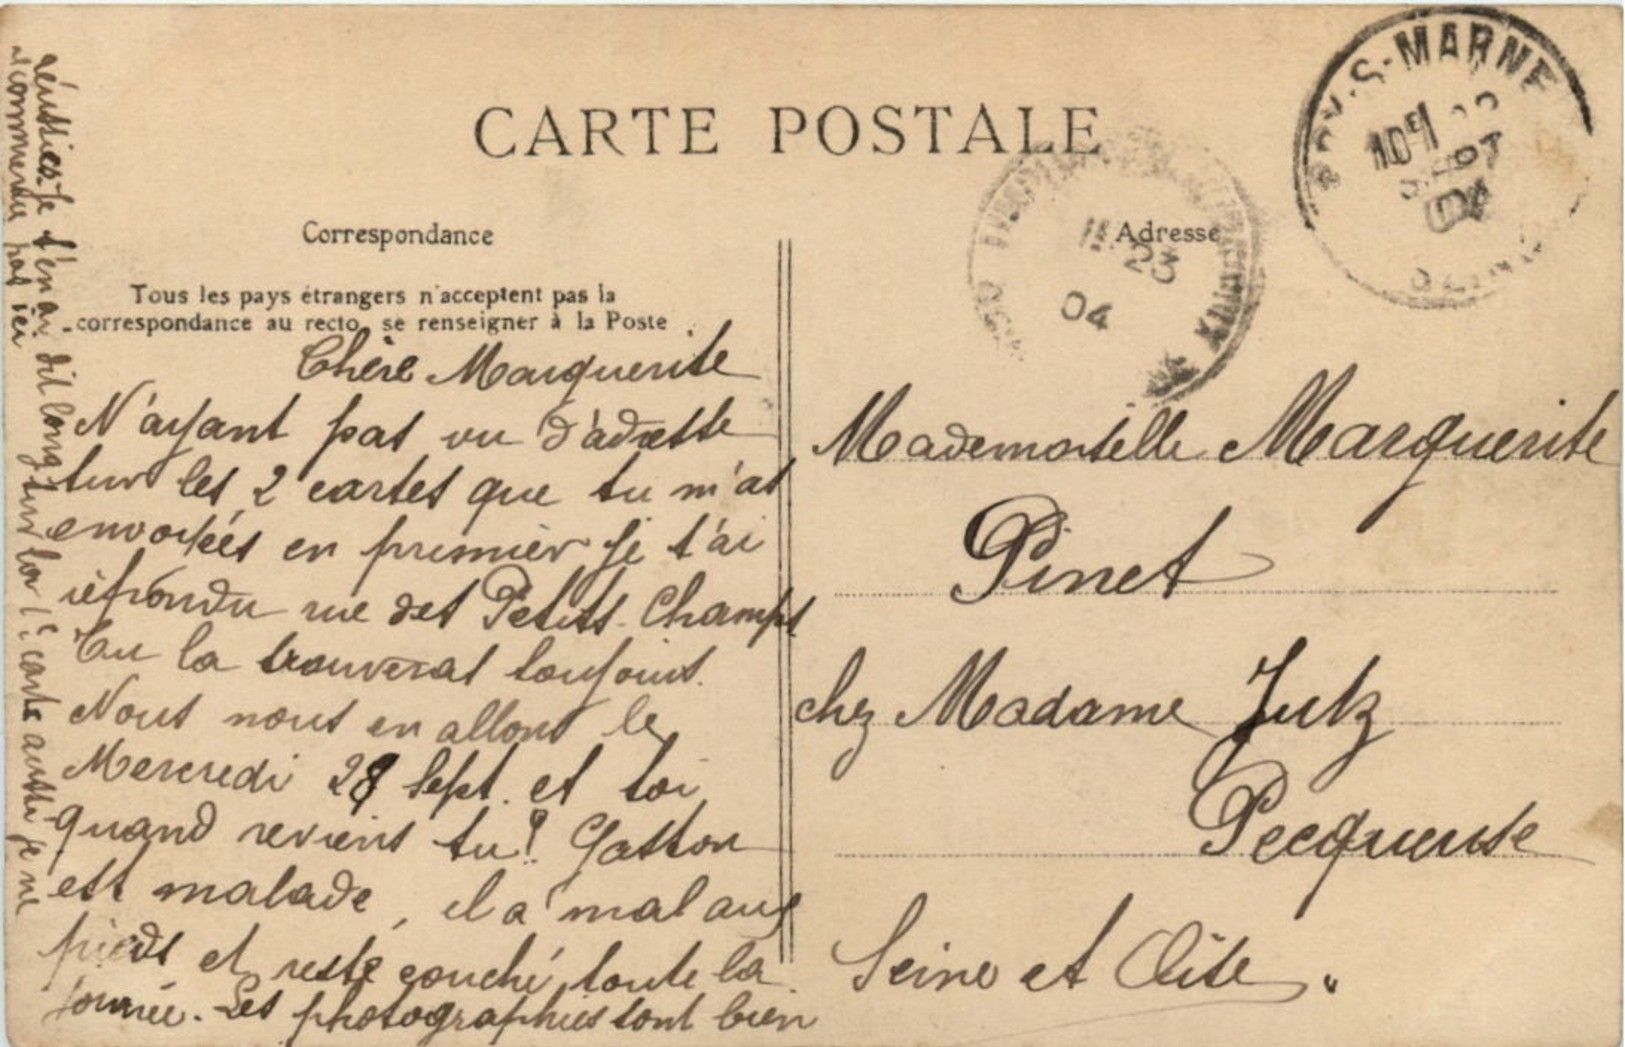 CARTE POSTALE
Correspondance
Adresse
Tous les pays étrangers n'acceptent pas la
correspondance au recto, se renseigner à la Poste
Chère Marguerite
N'ayant pas vu d'adresse
sur les 2 cartes que tu m'as
envoyées en premier je t'ai
répondu rue des Petits-Champs
Tu la trouveras toujours.
Nous nous en allons le
Mercredi 28 Sept. et toi
quand reviens tu? Gaston
est malade, il a mal aux
pieds et reste couché toute la
journée. Les photographies sont bien
réussies. Je t'en ai dit long sur la 1e. carte aussi je ne
recommence pas ici
Mademoiselle Marguerite
Pinet
chez Madame Jutz
Pecqueuse
Seine et Oise
S-MARNE
10E
04
04